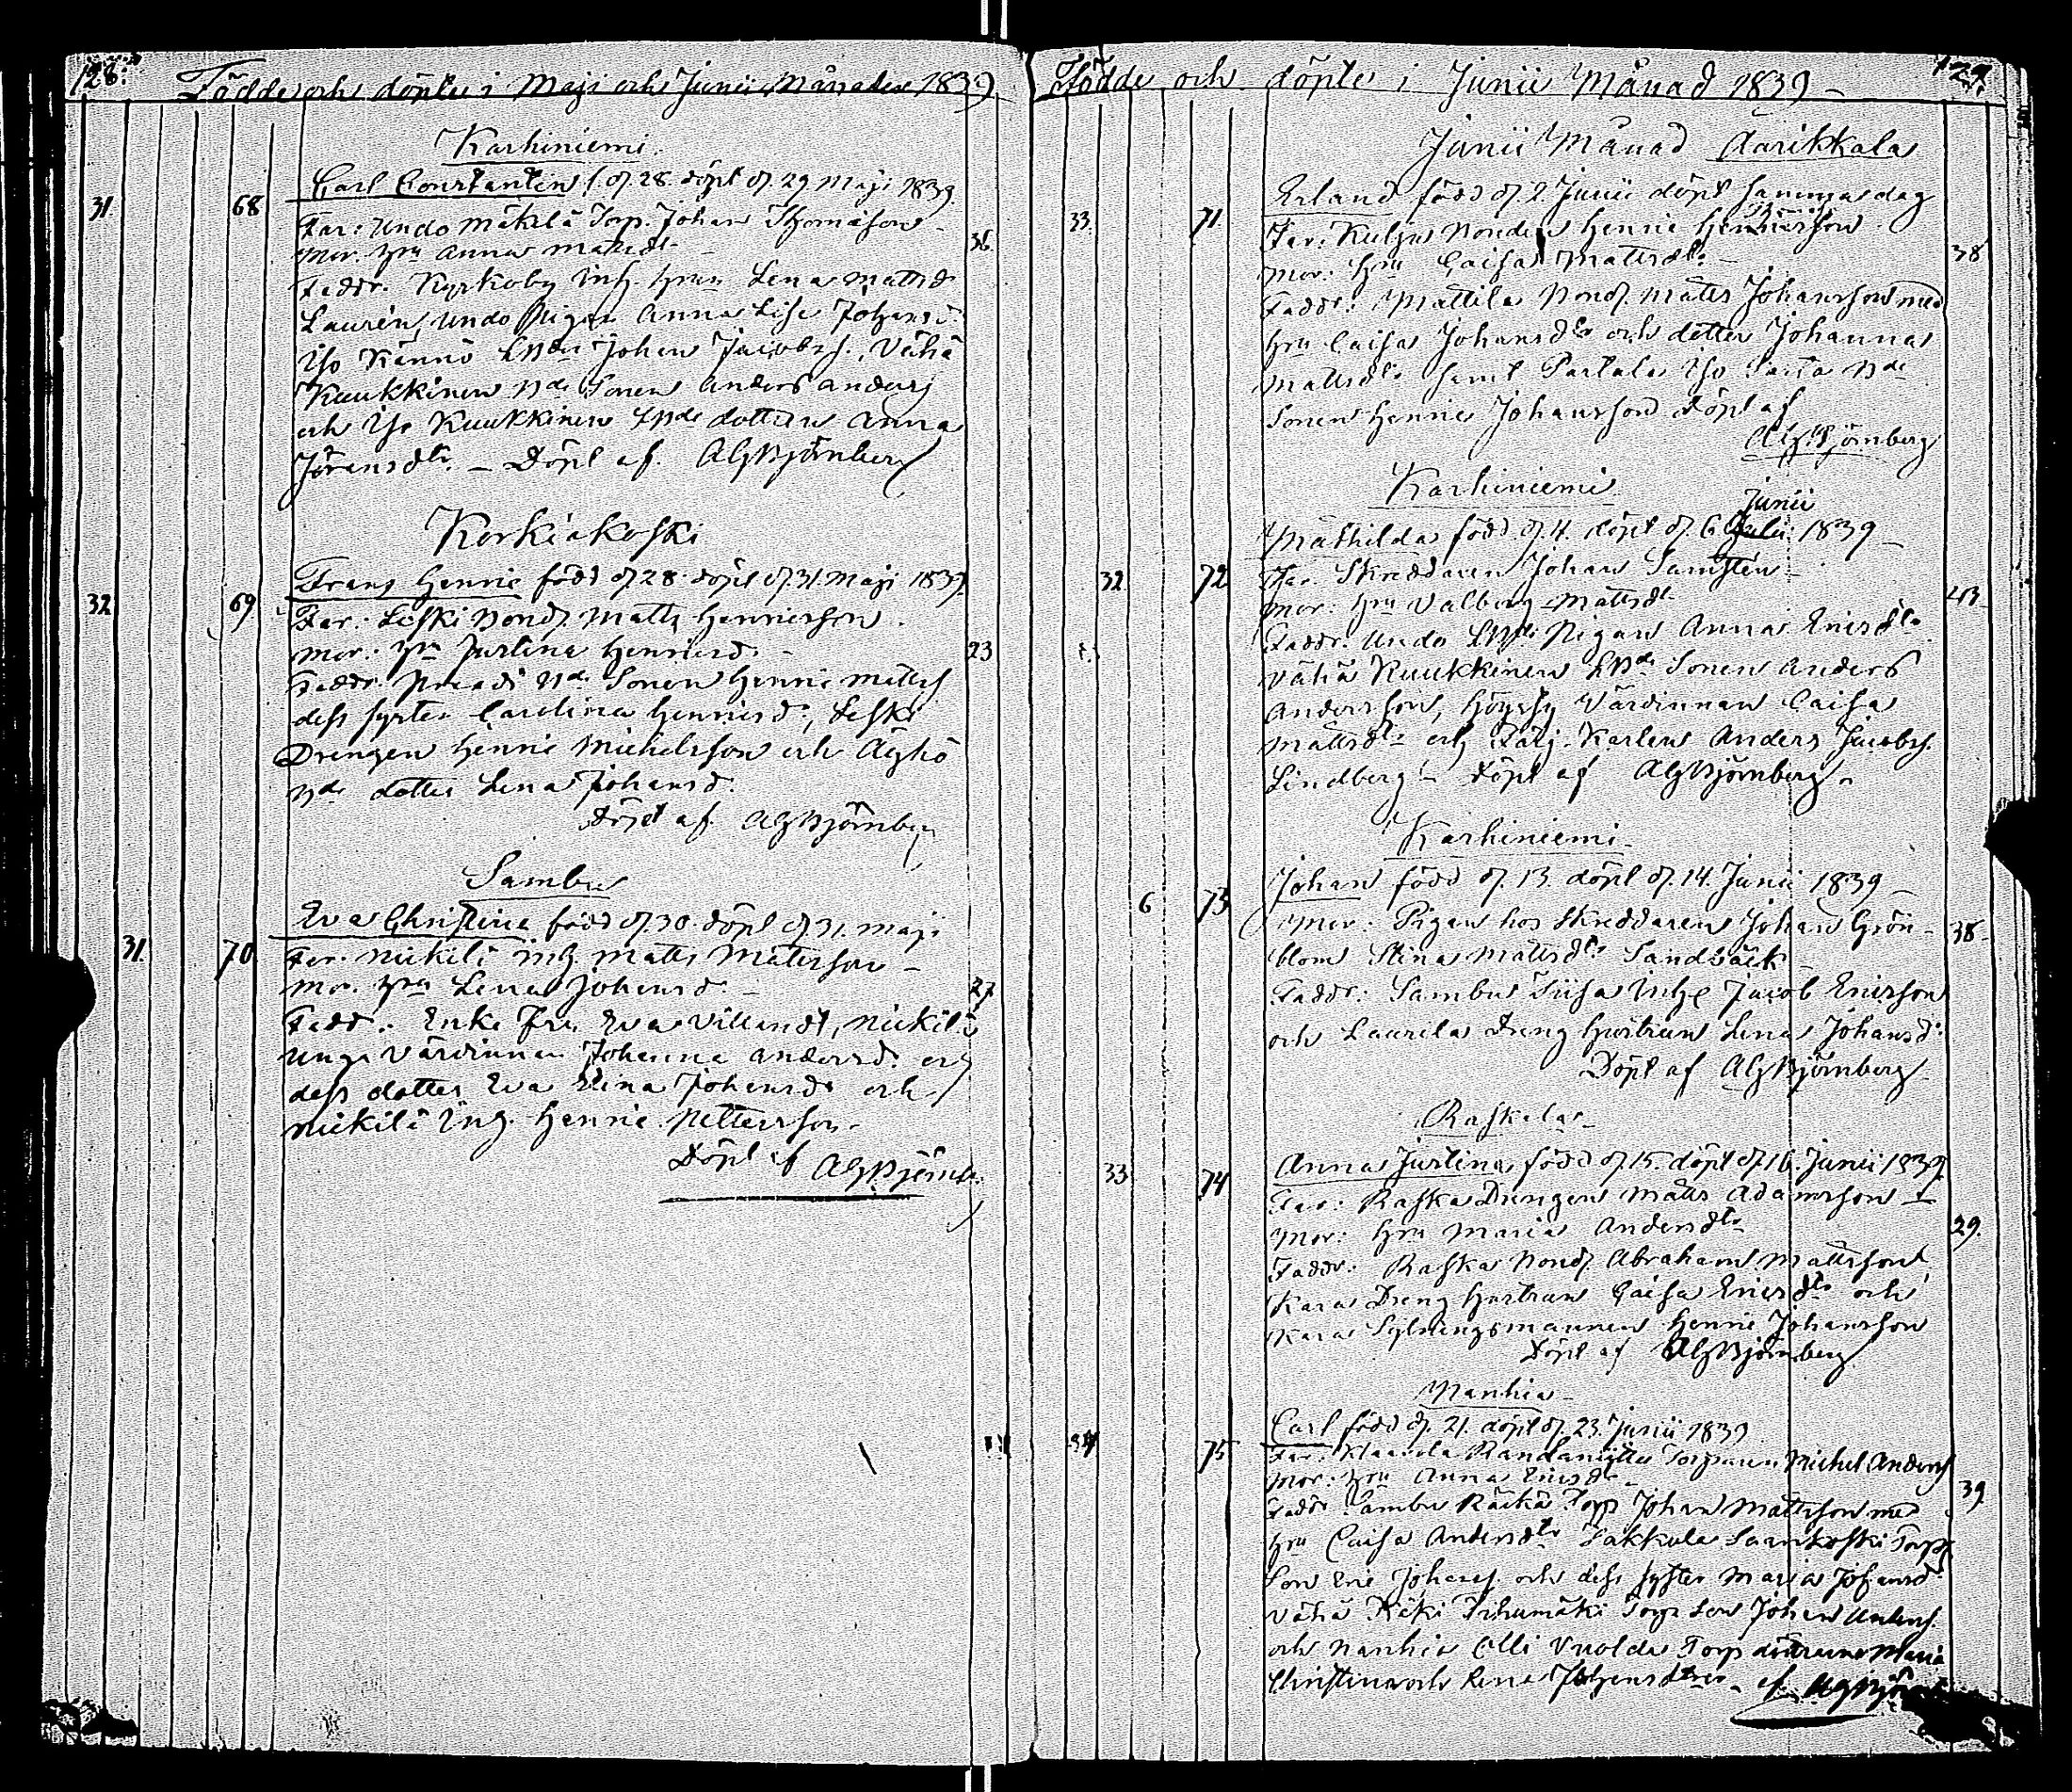 128.
Födde och döpte i Maji och Junii Månader 1839
Karhiniemi.
Carl Constantin f. d. 28. döpt d. 29 Maji 1839.
31. 68
Far: Undo Mäkelä Torp. Johan Thomasson
Mor. Hu Anna Mattsdr 36.
Faddr. Kyrkoby Inh. Hrun Lena Mattsd
Laurén, Undo Pigan Anna Lisa Johansd.
Iso Kännö Johan Jacobss., Vähä
Kuukkinen Sonen Anders Anderss
och Iso Kuukkinen dottren Anna
Jöransdr. – Döpt af. AGBjörnberg
Korkiakoski
Frans Henric född d. 28. döpt d. 31. Maji 1839.
32 69.
Far: Leski Bond. Matts Henricsson.
Mor: Hu Justina Henricsd. 23
Faddr. Sonen Henric Mattss
dess syster Carolina Henricsd., Leski
Drengen Henric Michelsson och Äghö
dotter Lena Johansd.
Döpt af. AGBjörnberg
Sambu
Eva Christina född d. 30. döpt d. 31. Maji
31. 70
Far. Nickilä Inh. Matts Matsson
Mor. Hu Lena Johansd. 27
Fadd.: Enke Fru Eva, Nickilä
unga Värdinnan Johanna Andersd. och
dess dotter Eva Stina Johansd och
Nickilä Ing. Henric
Döpt af AGBjörnb.
Födde och döpte i Junii Månad 1839 –
Junii Månad Äärikkala
Erland född d. 2. Junii döpt samma dag
33. 71.
Far: Kulju Bonden Henric
Mor: Hru Caisa Mattsdr. 38
Faddr: Mattila Bond. Matts Johansson med
Hru Caisa Johansdr och dotter Johanna
Mattsdr samt Partala Iso
Sonen Henric Johansson Döpt af
AGBjörnberg
Karhiniemi
Junii
Mathilda född d. 4. döpt d. 6 1839 –
32. 72
Far Skreddaren Johan Samstén
Mor: Hru Valborg Mattsdr 43.
Faddr. Undo Pigan Anna Ericsdr
Vähä Kuukkinen Sonen Anders
Andersson, Värdinnan Caisa
Mattsdr och Karlen Anders Jacobss.
Lindberg – Döpt af AGBjörnberg.
Karhiniemi
Johan född d. 13. döpt d. 14. Junii 1839 –
6 73
Mor: Pigan hos Skreddaren Johan Grön-
blom Stina Mattsdr Sandbäck 38
Faddr: Sambu Inh. Jacob Ericsson
och Laurila Dreng Hustrun Lena Johansdr
Döpt af AGBjörnberg
Raskala
Anna Justina född d. 15. döpt d. 16. Junii 1839
33 74
Far: Raska Drengen Matts Adamsson –
Mor: Hru Maria Andersdr 29.
Faddr: Raska Bond. Abraham Mattsson
Kara Dreng Hustrun Caisa Ericsdr och
Kara Sytningsmannen Henric Johansson
Döpt af AGBjörnberg
Nanhia
Carl född d. 21. döpt d. 23. Junii 1839
34 75
Far: Klaavola Torparen Michel Anderss
Mor: Hru Anna Ericsdr 39.
Faddr: Sambu Räikä Torp Johan Mattsson med
Hru Caisa Andersdr Sakkula Torp
Son Eric Johanss. och dess Syster Maria Johansd
Vähä Torp. Son Johan Anderss.
och Nanhia Olli Torp döttrarne Maria
Christina och Lena Johansdtrar. af AGBjörn